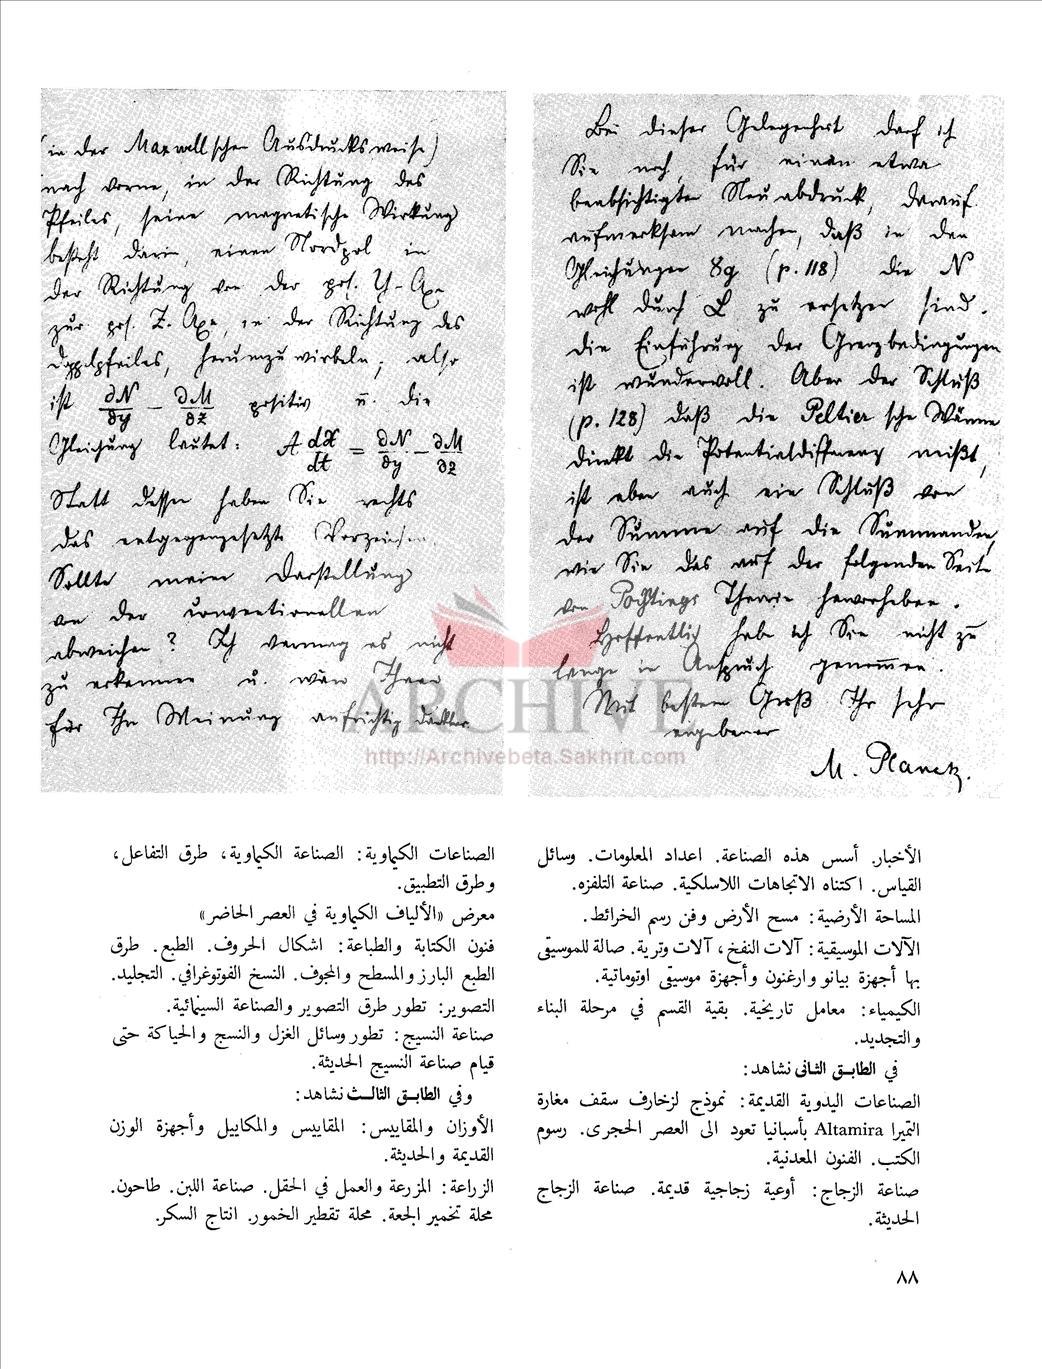 (in der Maxwellschen Ausdrucksweise)
nach vorne, in der Richtung des
Pfeiles, seine magnetische Wirkung
besteht darin, einen Nordpol in
der Richtung von der pos. Y-Axe
zur pos. Z-Axe, in der Richtung des
Doppelpfeiles, herumzuwirbeln; also
ist ∂N/∂y − ∂M/∂z positiv u. die
Gleichung lautet: A dX/dt = ∂N/∂y − ∂M/∂z
Statt dessen haben Sie rechts
das entgegengesetzte Vorzeichen
Sollte meine Darstellung
von der conventionellen
abweichen? Ich vermag es nicht
zu erkennen u. wäre Ihnen
für Ihre Meinung aufrichtig dankbar
Bei dieser Gelegenheit darf ich
Sie noch, für einen etwa
beabsichtigten Neuabdruck, darauf
aufmerksam machen, daß in den
Gleichungen 8g (p. 118) die N
wohl durch L zu ersetzen sind.
Die Einführung der Grenzbedingungen
ist wundervoll. Aber der Schluß
(p. 128) daß die Peltiersche Wärme
direkt die Potentialdifferenz mißt,
ist eben auch ein Schluß von
der Summe auf die Summanden,
wie Sie das auf der folgenden Seite
von Theorie hervorheben.
Hoffentlich habe ich Sie nicht zu
lange in Anspruch genommen.
Mit bestem Gruß Ihr sehr
ergebener
M. Planck.
ARCHIVE
http://Archivebeta.Sakhrit.com
الأخبار. أسس هذه الصناعة. اعداد المعلومات. وسائل
القياس. اكتناه الاتجاهات اللاسلكية. صناعة التلفزه.
المساحة الأرضية: مسح الأرض وفن رسم الخرائط.
الآلات الموسيقية: آلات النفخ، آلات وترية. صالة للموسيقى
بها أجهزة بيانو وارغنون وأجهزة موسيقى اوتوماتية.
الكيمياء: معامل تاريخية. بقية القسم في مرحلة البناء
والتجديد.
في الطابق الثاني نشاهد:
الصناعات اليدوية القديمة: نموذج لزخارف سقف مغارة
التميرا Altamira بأسبانيا تعود الى العصر الحجرى. رسوم
الكتب. الفنون المعدنية.
صناعة الزجاج: أوعية زجاجية قديمة. صناعة الزجاج
الحديثة.
الصناعات الكيماوية: الصناعة الكيماوية، طرق التفاعل،
وطرق التطبيق.
معرض «الألياف الكيماوية في العصر الحاضر»
فنون الكتابة والطباعة: اشكال الحروف. الطبع. طرق
الطبع البارز والمسطح والمجوف. النسخ الفوتوغرافي. التجليد.
التصوير: تطور طرق التصوير والصناعة السينمائية.
صناعة النسيج: تطور وسائل الغزل والنسج والحياكة حتى
قيام صناعة النسيج الحديثة.
وفي الطابق الثالث نشاهد:
الأوزان والمقاييس: المقاييس والمكاييل وأجهزة الوزن
القديمة والحديثة.
الزراعة: المزرعة والعمل في الحقل. صناعة اللبن. طاحون.
محلة تخمير الجعة. محلة تقطير الخمور. انتاج السكر.
٨٨